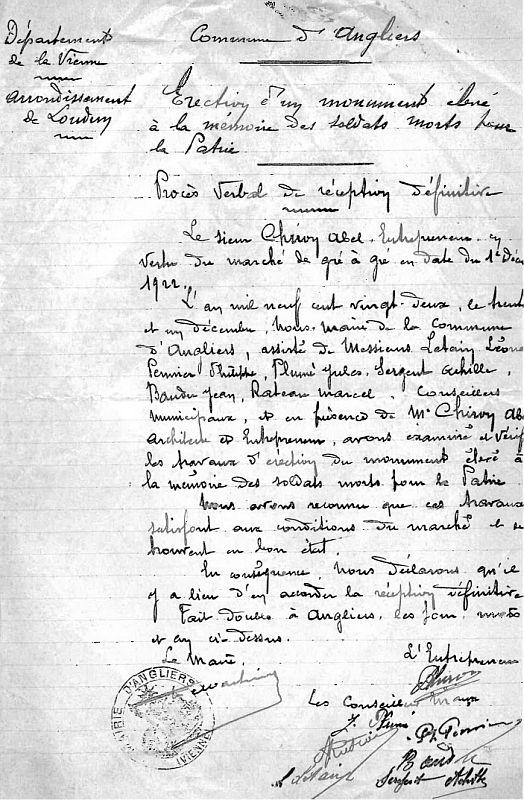 Département
de la Vienne
Arrondissement
de Loudun
Commune d'Angliers
Erection d'un monument élevé
à la mémoire des soldats morts pour
la Patrie
Procès Verbal de réception définitive
Le sieur Chiron Abel, Entrepreneur, en
vertu du marché de gré à gré en date du 1er Déc
1922.
L'an mil neuf cent vingt-deux, le trente
et un décembre, Nous, maire de la commune
d'Angliers, assisté de Messieurs Letain, Léon
Pennier Philippe, Plumé Jules, Sergent Achille,
Baudu Jean, Rateau Marcel, Conseillers
Municipaux, et en présence de Mr Chiron Abe
Architecte et Entrepreneur, avons examiné et vérif
les travaux d'érection du monument élevé à
la mémoire des soldats morts pour la Patrie
Nous avons reconnu que ces travaux
satisfont aux conditions du marché et se
trouvent en bon état.
En conséquence, Nous déclarons qu'il
y a lieu d'en accorder la réception définitive
Fait double à Angliers, les jour, mois
et an ci-dessus.
Le Maire,
L'Entrepreneur
Chiron
MAIRIE D'ANGLIERS
(VIENNE)
Les Conseillers Maux
J. Plumé
Ph. Pennier
Baudu
L Letain
Sergent Achille